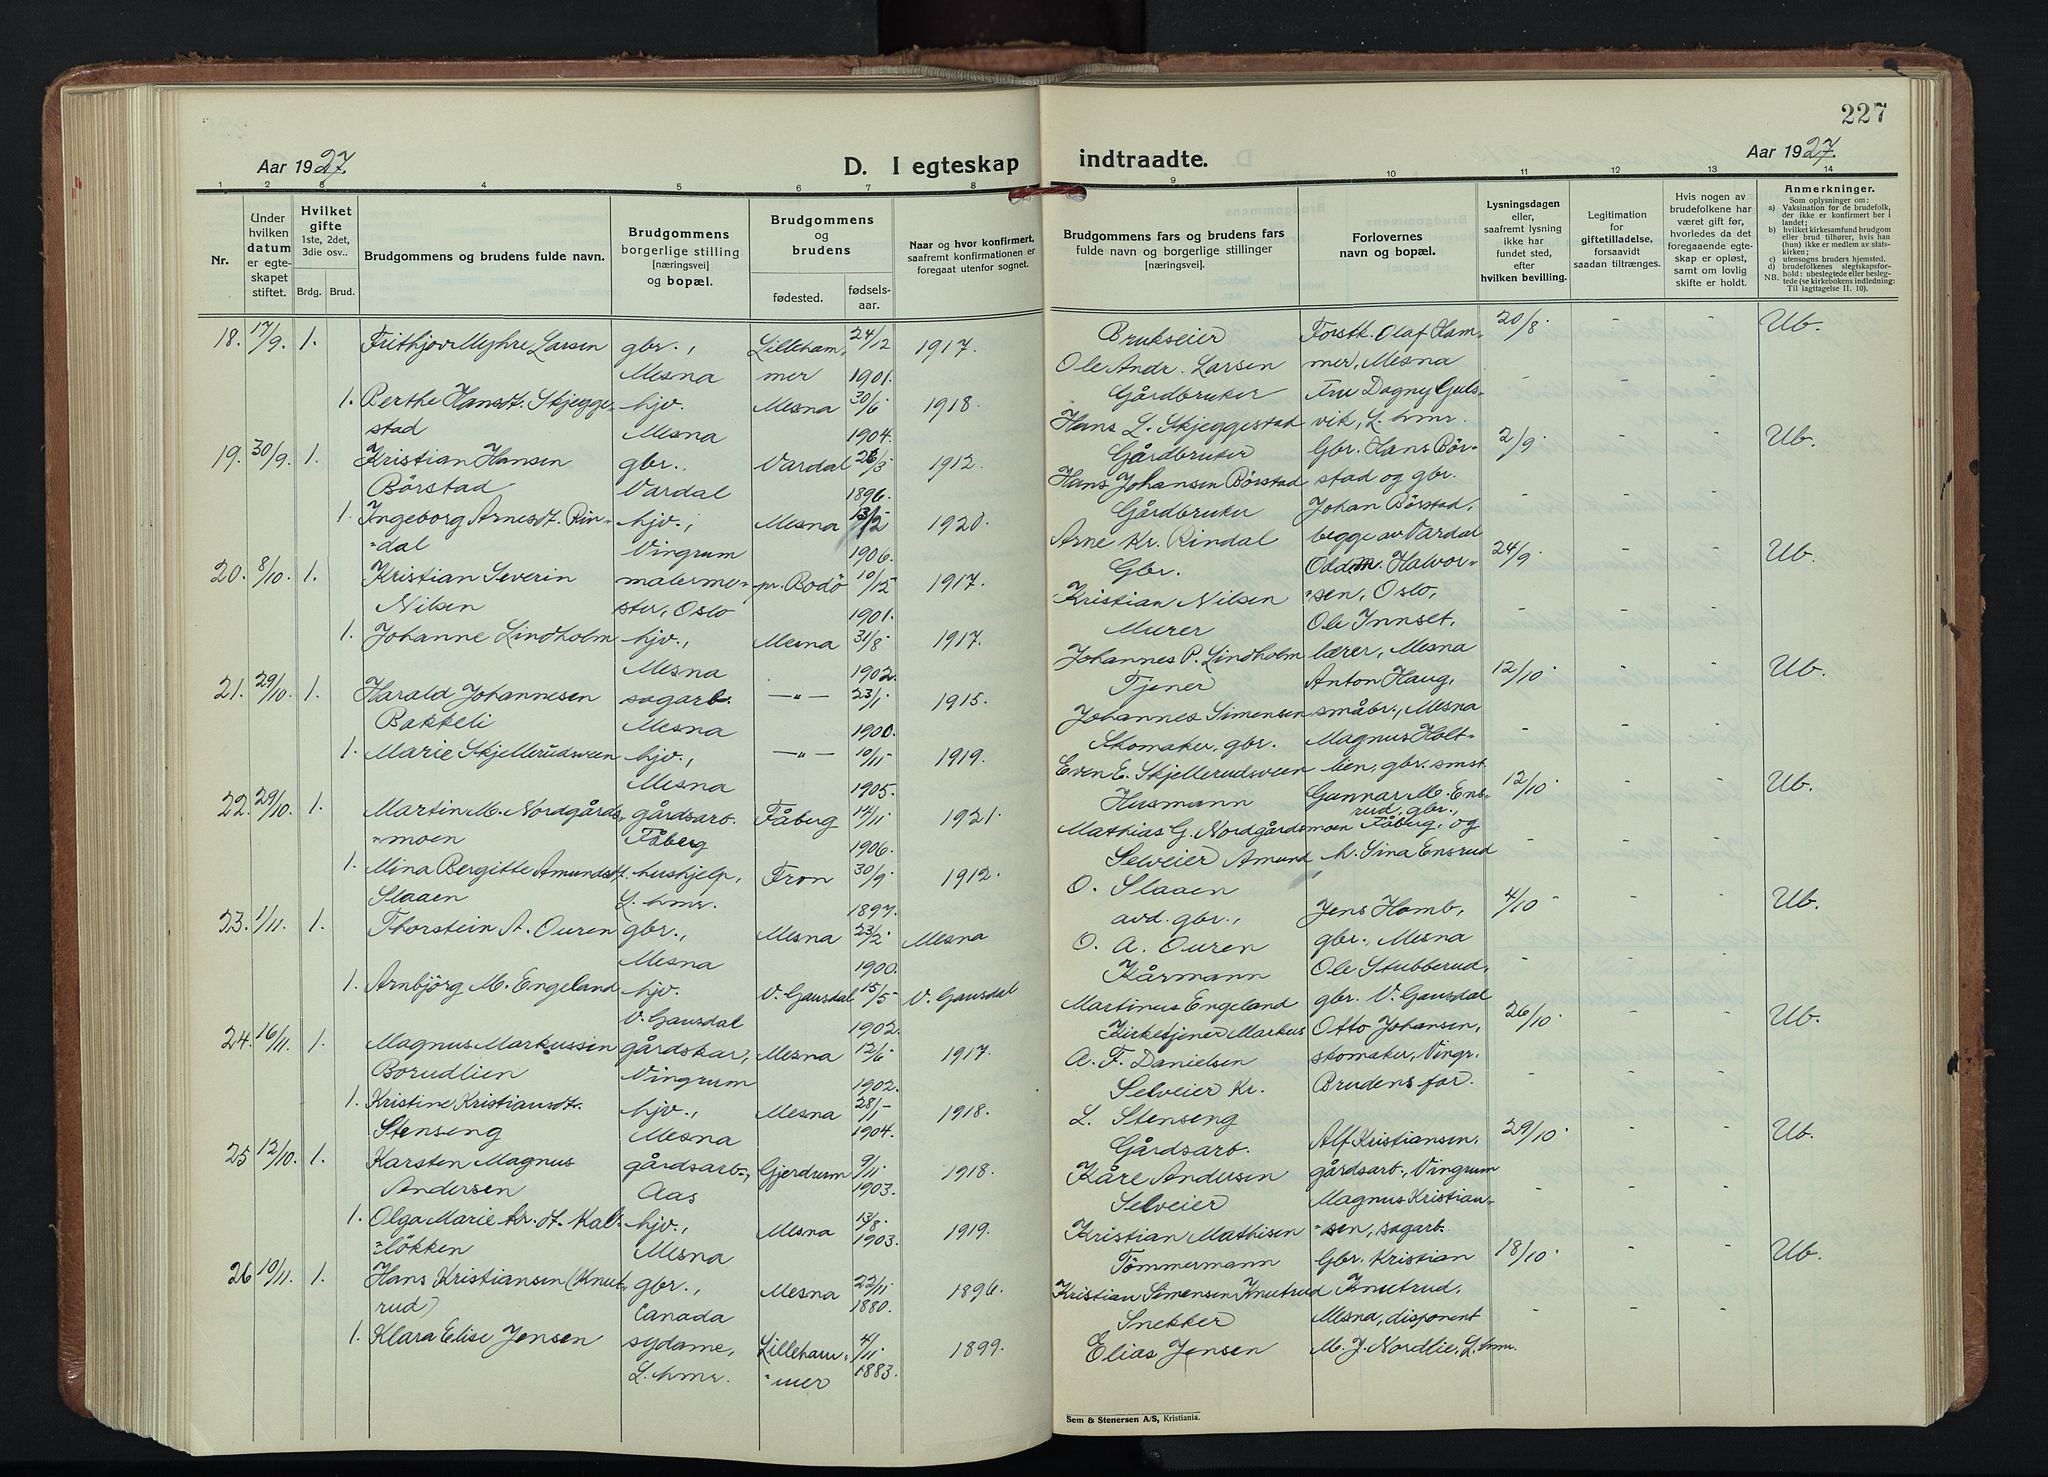 227
Aar 1927.
D. I egteskap
indtraadte.
Aar 1927.
1 2 3 4 5 6 7 8 9 10 11 12 13 14
Nr.
Under hvilken datum er egteskapet stiftet.
Hvilket gifte 1ste, 2det, 3die osv..
Brdg. Brud.
Brudgommens og brudens fulde navn.
Brudgommens borgerlige stilling [næringsvei] og bopæl.
Brudgommens og brudens
fødested.
fødselsaar.
Naar og hvor konfirmert, saafremt konfirmationen er foregaat utenfor sognet.
Brudgommens fars og brudens fars fulde navn og borgerlige stillinger [næringsvei].
Forlovernes navn og bopæl.
Lysningsdagen eller, saafremt lysning ikke har fundet sted, efter hvilken bevilling.
Legitimation for giftetilladelse, forsaavidt saadan tiltrænges.
Hvis nogen av brudefolkene har været gift før, hvorledes da det foregaaende egteskap er opløst, samt om lovlig skifte er holdt.
Anmerkninger.
Som oplysninger om:
a) Vaksination for de brudefolk, der ikke er konfirmert her i landet;
b) hvilket kirkesamfund brudgom eller brud tilhører, hvis han (hun) ikke er medlem av statskirken;
c) utensogns bruders hjemsted.
d) brudefolkenes slegtskapsforhold: ubeslegtede eller beslegtede (se kirkebokens indledning: Til iagttagelse II. 10).
NB.
18. 17/9. 1. Frithjov Myhre Larsen gbr., Mesna Lillehammer 24/12 1901. 1917. Brukseier Ole Andr. Larsen Forstk. Olaf Hammer, Mesna 20/8. - - Ub.
1. Berthe Hansdt. Skjeggestad hjv. Mesna Mesna 30/6 1904. 1918. Gårdbruker Hans L. Skjeggestad Fru Dagny Gulsvik, L.hmr. - - -
19. 30/9. 1. Kristian Hansen Børstad gbr. Vardal Vardal 26/3 1896. 1912. Gårdbruker Hans Johansen Børstad Gbr. Hans Børstad og gbr. 2/9. - - Ub.
1. Ingeborg Arnesdt. Rindal hjv., Vingrum Mesna 13/2 1906. 1920. Gårdbruker Arne Kr. Rindal Johan Børstad, begge av Vardal - - -
20. 8/10. 1. Kristian Severin Nilsen malermester, Oslo pr. Bodö 10/12 1901. 1917. Gbr. Kristian Nilsen Oddm. Halvorsen, Oslo, 24/9. - - Ub.
1. Johanne Lindholm hjv., Mesna Mesna 31/8 1902. 1917. Murer Johannes P. Lindholm Ole Innset, lærer, Mesna - - -
21. 29/10. 1. Harald Johannesen Bakkeli sagarb. Mesna —"— 23/1 1900. 1915. Tjener Johannes Simensen Anton Haug, småbr., Mesna 12/10. - - Ub.
1. Marie Skjellerudsveen hjv., Mesna —"— 10/11 1905. 1919. Skomaker, gbr. Even E. Skjellerudsveen Magnus Holtlien, gbr. smst. - - -
22. 29/10. 1. Martin M. Nordgårdsmoen gårdsarb. Fåberg Fåberg 14/11 1906. 1921. Husmann Mathias G. Nordgårdsmoen Gunnar M. Ensrud, gbr., Fåberg, og 12/10. - - Ub.
1. Mina Bergitte Amundsdt. Slaaen hushjelp, L.hmr. Fron 30/9 1897. 1912. Selveier Amund O. Slaaen M. Sina Ensrud - - -
23. 1/11. 1. Thorstein A. Ouren gbr., Mesna Mesna 23/2 1900. Mesna avd. gbr., O. A. Ouren Jens Homb, gbr., Mesna 4/10. - - Ub.
1. Arnbjörg M. Engeland hjv. V. Gausdal V. Gausdal 15/5 1902. V. Gausdal Kårmann Martinus Engeland Ole Stubberud, gbr. V. Gausdal - - -
24. 16/11. 1. Magnus Markussen Borudlien gårdskar, Vingrum Mesna 12/6 1902. 1917. Kirketjener Markus A. F. Danielsen Otto Johansen, skomaker, Vingr. 26/10. - - Ub.
1. Kristine Kristiansdt. Stenseng hjv., Mesna Mesna 28/1 1904. 1918. Selveier Kr. L. Stenseng Brudens far. - - -
25 12/10. 1. Karsten Magnus Andersen gårdsarb., Aas Gjerdrum 9/11 1903. 1918. Gårdsarb. Kåre Andersen Alf Kristiansen, gårdsarb., Vingrum 29/10. - - Ub.
1. Olga Marie Kr.dt. Kalløkken hjv., Mesna Mesna 13/8 1903. 1919. Selveier Kristian Mathisen Magnus Kristiansen, sagarb. - - -
26 10/11. 1. Hans Kristiansen (Knutrud) gbr., Canada Mesna 22/11 1880. 1896. Tømmermann Kristian Simensen Knutrud Gbr. Kristian Knutrud, 18/10. - - Ub.
1. Klara Elise Jensen sydame, L.hmr. Lillehammer 4/11 1883. 1899. Snekker Elias Jensen Mesna, disponent M. J. Nordlie, L.hmr. - - -
Sem & Stenersen A/S, Kristiania.